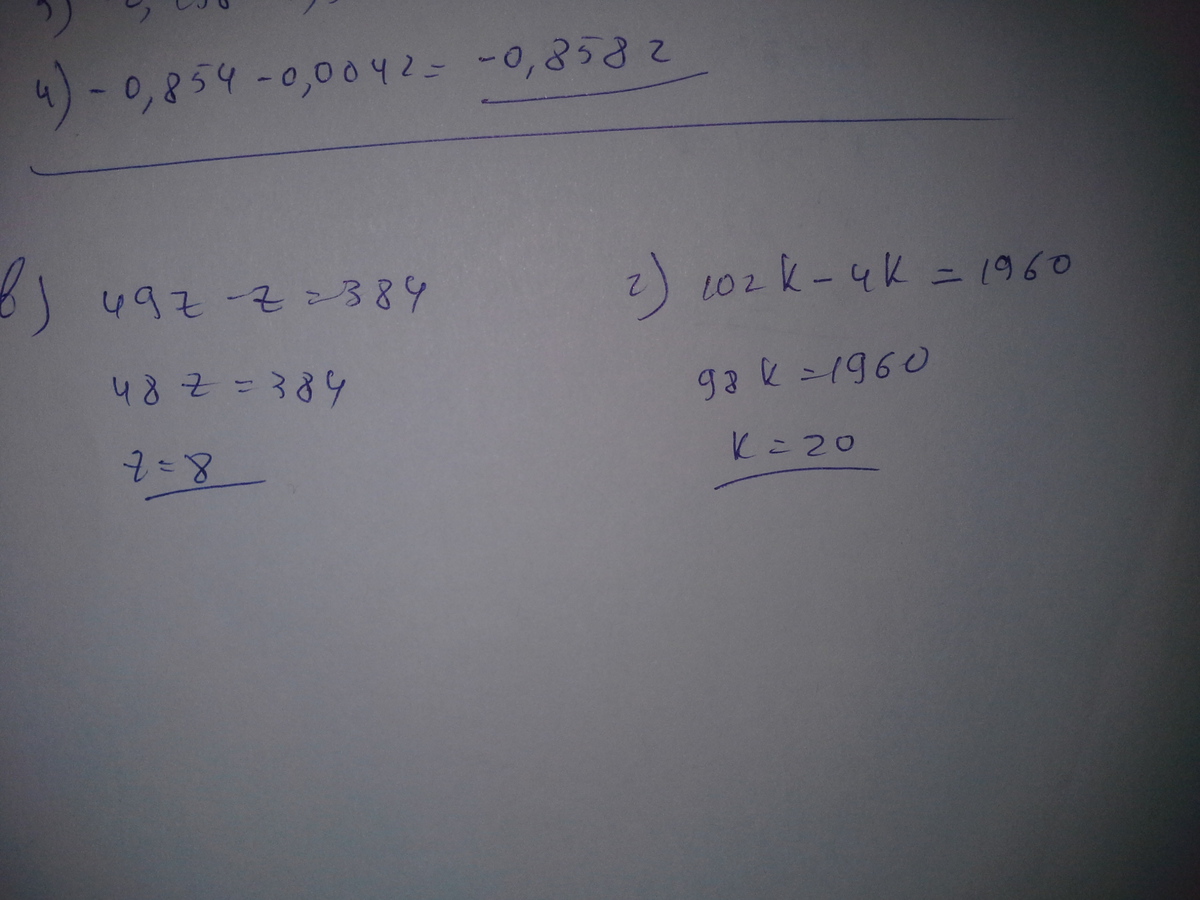 4) -0,854 -0,0042= -0,8582
в) 49z -z =384
48 z =384
z=8
г) 102k - 4k = 1960
98 k =1960
k = 20